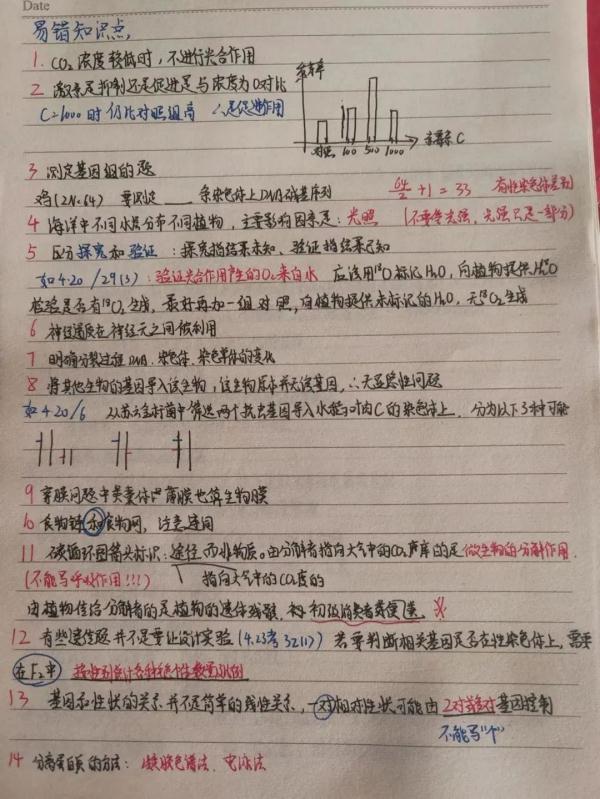 Date
易错知识点
1. CO₂浓度较低时，不进行光合作用
2 激素是抑制还是促进是与浓度为0对比
C=1000时仍比对照组高 ∴是促进作用
生根率
对照 100 500 1000 生长素C
3 测定基因组的题
鸡(2N=64) 要测定____条染色体上DNA碱基序列 64/2+1=33 有性染色体差别
4 海洋中不同水层分布不同植物，主要影响因素是：光照 (不要写光强，光强只是一部分)
5 区分探究和验证：探究指结果未知、验证指结果已知
如4.20/29(3)：验证光合作用产生的O₂来自水 应该用¹⁸O标记H₂O，向植物提供H₂¹⁸O
检验是否有¹⁸O₂生成，最好再加一组对照，向植物提供未标记的H₂O，无¹⁸O₂生成
6 神经递质在神经元之间被利用
7 明确分裂过程DNA、染色体、染色单体的变化
8 将其他生物的基因导入该生物，该生物原本并无该基因，∴无显隐性问题
如4.20/6 从苏云金杆菌中筛选两个抗虫基因导入水稻叶肉C的染色体上，分为以下3种可能
9 穿膜问题中类囊体薄膜也算生物膜
10 食物链和食物网，注意连间
11 碳循环图箭头标识：途径而非物质。由分解者指向大气中的CO₂库的是微生物的分解作用.
(不能写呼吸作用!!!) 指向大气中的CO₂库的
由植物传给分解者的是植物的遗体残骸，和初级消费者粪便
12 有些遗传题并不是要让设计实验(4.23考32(1)) 若要判断相关基因是否在性染色体上，需要
在F₂中 按性别统计各种表现个体数量比例
13 基因和性状的关系并不是简单的线性关系，一对相对性状可能由2对或多对基因控制
不能写"个"
14 分离蛋白质的方法：凝胶色谱法、电泳法